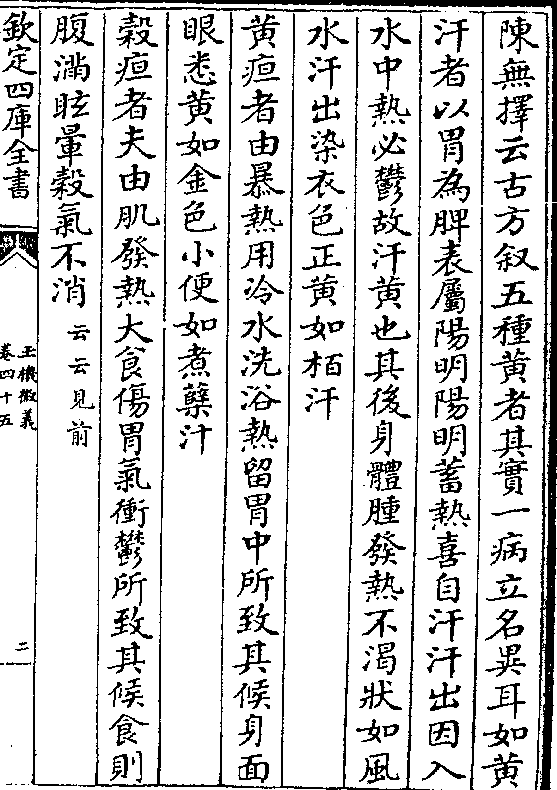 陳無擇云古方叙五種黄者其實一病立名異耳如黄
汗者以胃為脾表屬陽明陽明蓄熱喜自汗汗出因入
水中熱必鬱故汗黄也其後身體腫發熱不渴狀如風
水汗出染衣色正黄如栢汗
黄疸者由暴熱用冷水洗浴熱留胃中所致其候身面
眼悉黄如金色小便如煮蘖汁
穀疸者夫由肌發熱大食傷胃氣衝鬱所致其候食則
腹滿眩暈穀氣不消云云見前
欽定四庫全書
玉機微義
卷四十五
二